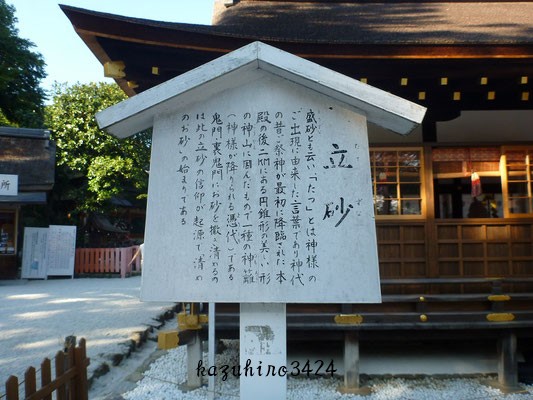 立砂
盛砂とも云い「たつ」とは神様の
ご出現に由来した言葉であり神代
の昔ご祭神が最初に降臨された本
殿の後二kmにある円錐形の美しい形
の神山に因んだもので一種の神籬
(神様が降りられる憑代)である
鬼門、裏鬼門にお砂を撒き清めるの
は此の立砂の信仰が起源で清め
のお砂、の始まりである
所
kazuhiro3424